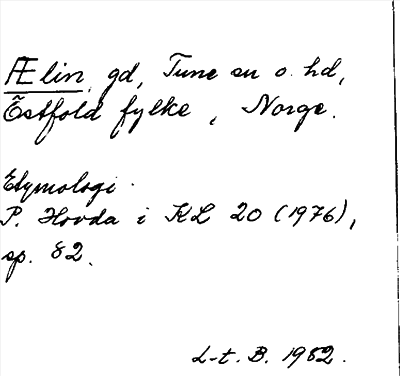 Ælin, gd, Tune sn o. hd,
Östfold fylke, Norge.
Etymologi.
P. Hovda i KL 20 (1976),
sp. 82.
L-t. B. 1982.